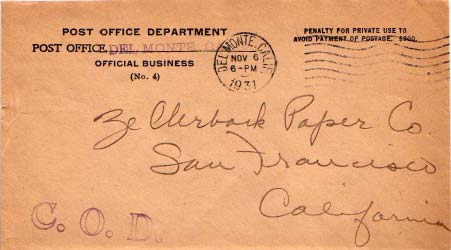 POST OFFICE DEPARTMENT
POST OFFICE, DEL MONTE, CALIF.
OFFICIAL BUSINESS
(No. 4)
DEL MONTE, CALIF.
NOV 6
6-PM
1931
PENALTY FOR PRIVATE USE TO
AVOID PAYMENT OF POSTAGE, $300
Zellerback Paper Co.
San Francisco
California
C. O. D.